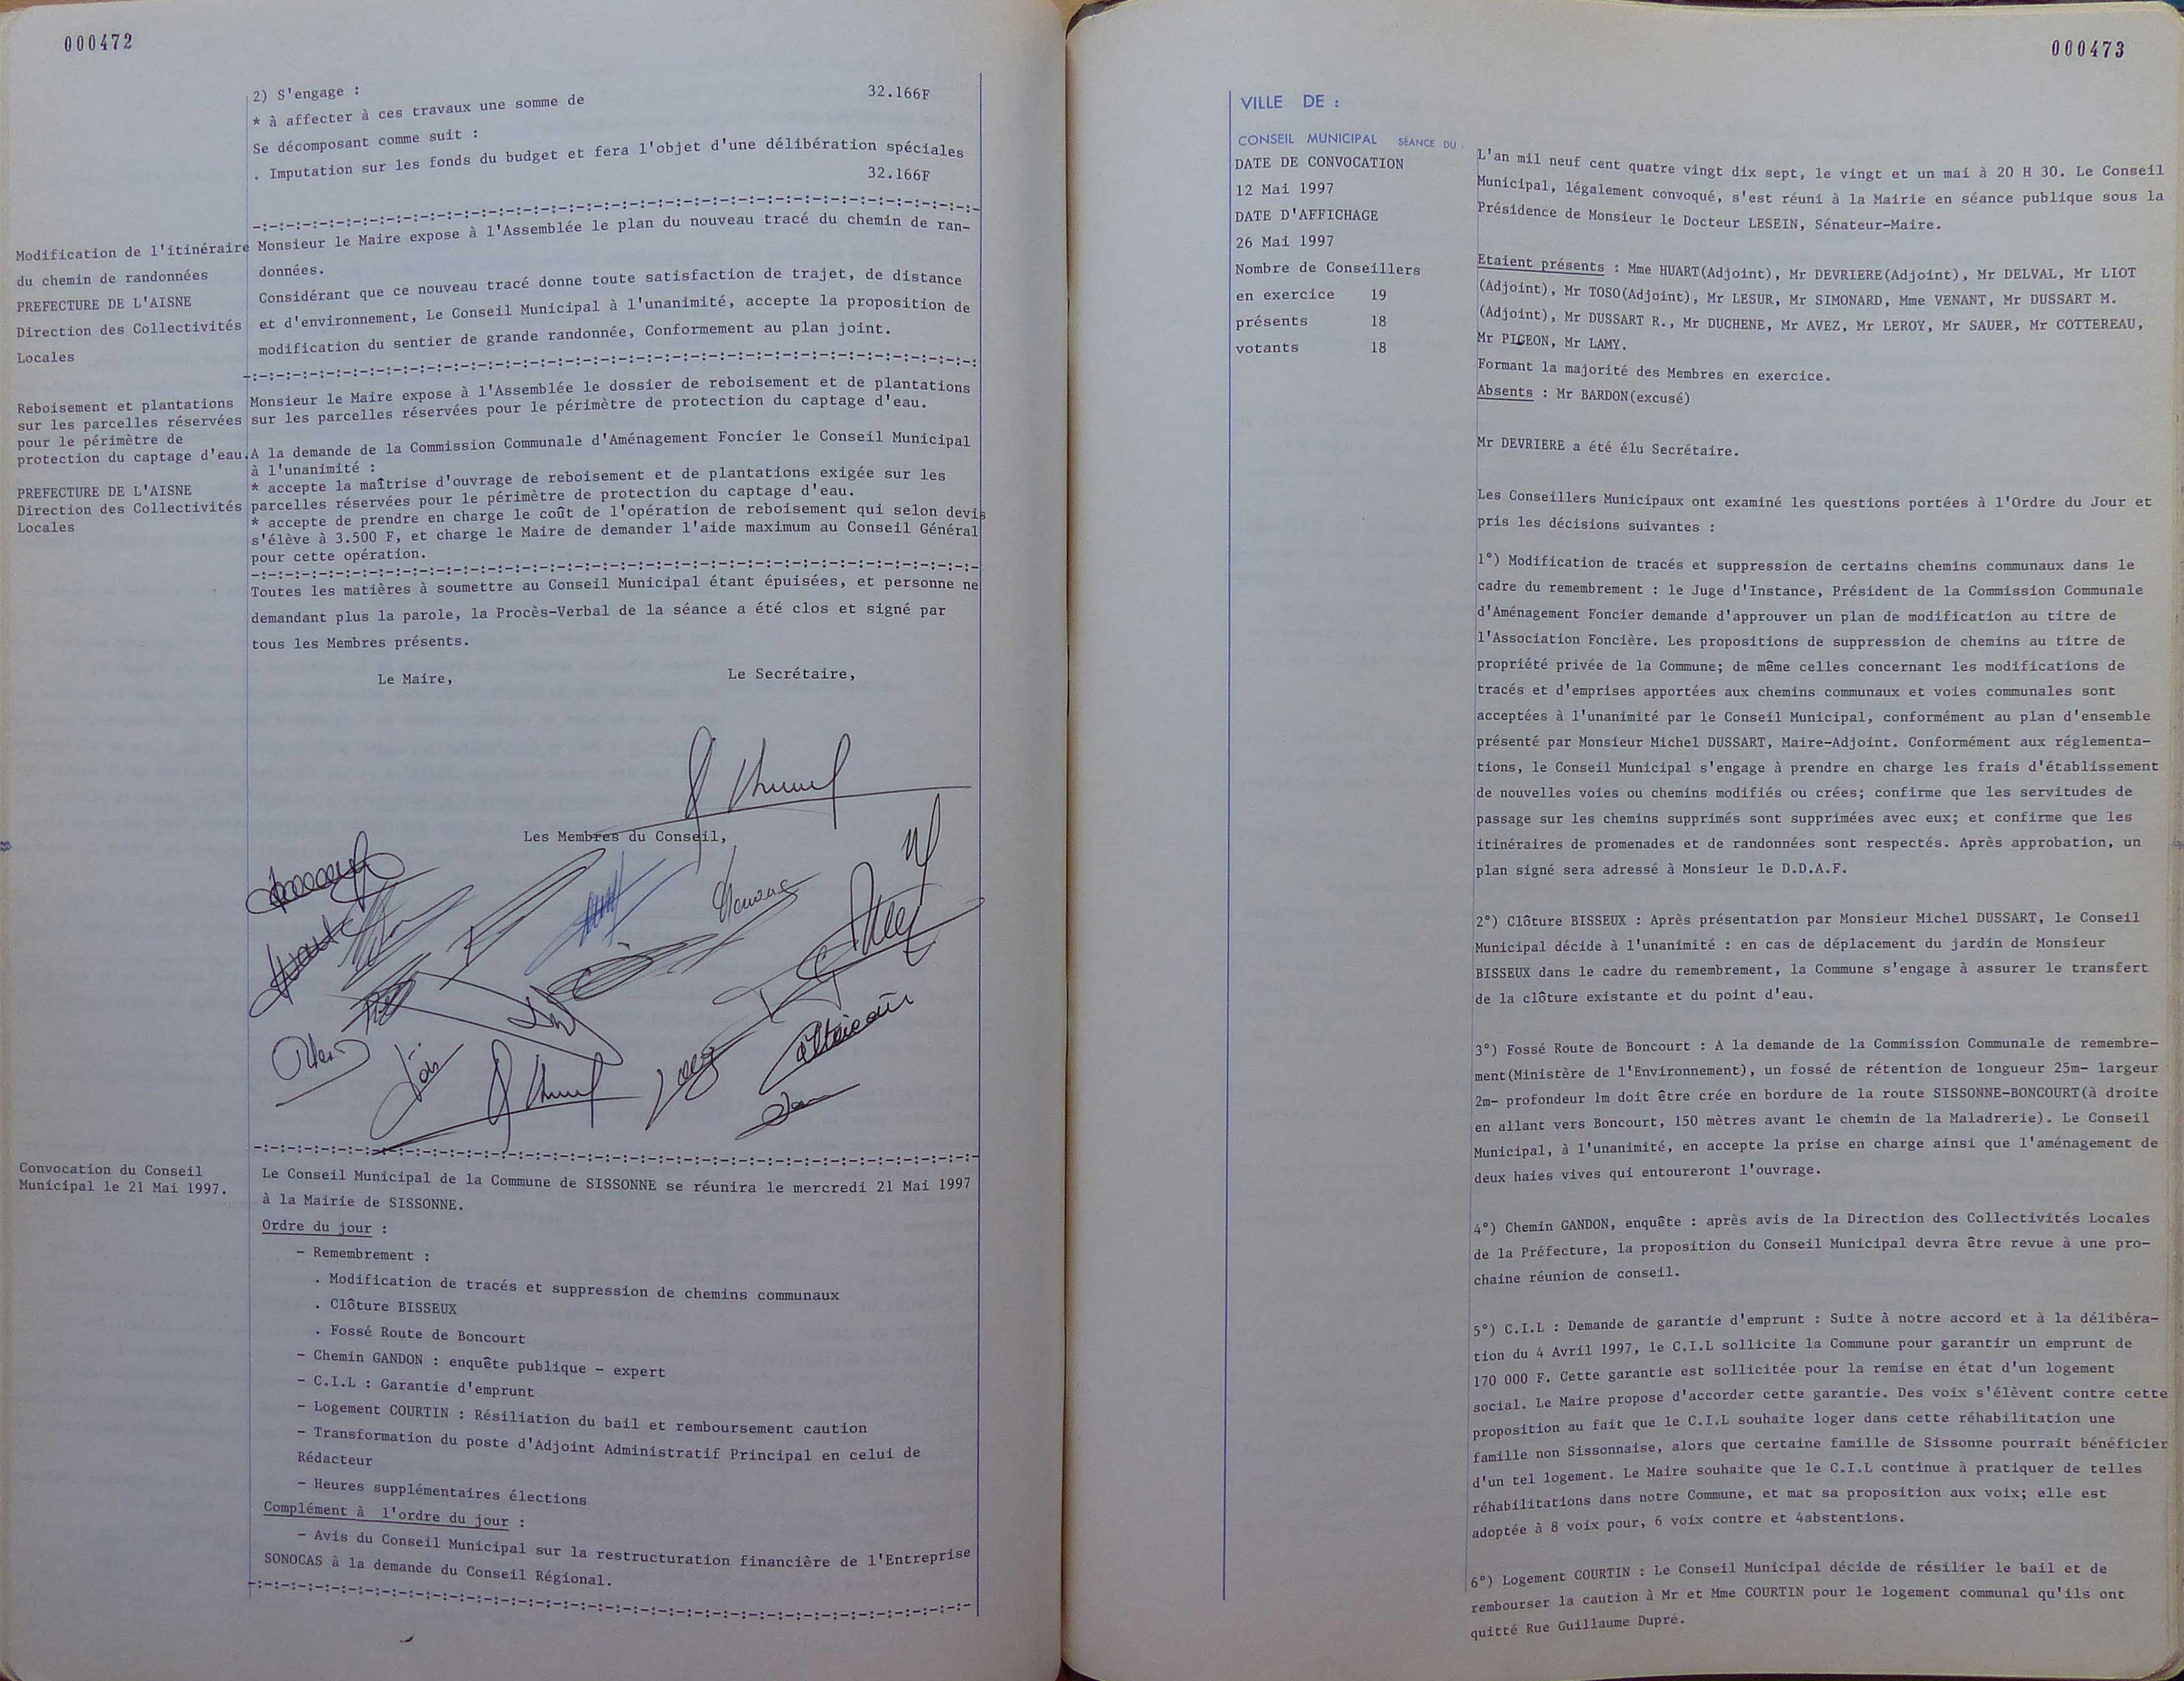 000472
2) S'engage :
* à affecter à ces travaux une somme de 32.166F
Se décomposant comme suit :
. Imputation sur les fonds du budget et fera l'objet d'une délibération spéciales
32.166F
-:-:-:-:-:-:-:-:-:-:-:-:-:-:-:-:-:-:-:-:-:-:-:-:-:-:-:-:-:-:-:-:-:-:-:-:-:-:-:-
Modification de l'itinéraire
du chemin de randonnées
PREFECTURE DE L'AISNE
Direction des Collectivités
Locales
Monsieur le Maire expose à l'Assemblée le plan du nouveau tracé du chemin de ran-
données.
Considérant que ce nouveau tracé donne toute satisfaction de trajet, de distance
et d'environnement, Le Conseil Municipal à l'unanimité, accepte la proposition de
modification du sentier de grande randonnée, Conformement au plan joint.
-:-:-:-:-:-:-:-:-:-:-:-:-:-:-:-:-:-:-:-:-:-:-:-:-:-:-:-:-:-:-:-:-:-:-:-:-:-:-:-:
Reboisement et plantations
sur les parcelles réservées
pour le périmètre de
protection du captage d'eau.
PREFECTURE DE L'AISNE
Direction des Collectivités
Locales
Monsieur le Maire expose à l'Assemblée le dossier de reboisement et de plantations
sur les parcelles réservées pour le périmètre de protection du captage d'eau.
A la demande de la Commission Communale d'Aménagement Foncier le Conseil Municipal
à l'unanimité :
* accepte la maîtrise d'ouvrage de reboisement et de plantations exigée sur les
parcelles réservées pour le périmètre de protection du captage d'eau.
* accepte de prendre en charge le coût de l'opération de reboisement qui selon devis
s'élève à 3.500 F, et charge le Maire de demander l'aide maximum au Conseil Général
pour cette opération.
-:-:-:-:-:-:-:-:-:-:-:-:-:-:-:-:-:-:-:-:-:-:-:-:-:-:-:-:-:-:-:-:-:-:-:-:-:-:-:-
Toutes les matières à soumettre au Conseil Municipal étant épuisées, et personne ne
demandant plus la parole, la Procès-Verbal de la séance a été clos et signé par
tous les Membres présents.
Le Maire, Le Secrétaire,
Les Membres du Conseil,
-:-:-:-:-:-:-:-:-:-:-:-:-:-:-:-:-:-:-:-:-:-:-:-:-:-:-:-:-:-:-:-:-:-:-:-:-:-:-:-
Convocation du Conseil
Municipal le 21 Mai 1997.
Le Conseil Municipal de la Commune de SISSONNE se réunira le mercredi 21 Mai 1997
à la Mairie de SISSONNE.
Ordre du jour :
- Remembrement :
. Modification de tracés et suppression de chemins communaux
. Clôture BISSEUX
. Fossé Route de Boncourt
- Chemin GANDON : enquête publique - expert
- C.I.L : Garantie d'emprunt
- Logement COURTIN : Résiliation du bail et remboursement caution
- Transformation du poste d'Adjoint Administratif Principal en celui de
Rédacteur
- Heures supplémentaires élections
Complément à l'ordre du jour :
- Avis du Conseil Municipal sur la restructuration financière de l'Entreprise
SONOCAS à la demande du Conseil Régional.
-:-:-:-:-:-:-:-:-:-:-:-:-:-:-:-:-:-:-:-:-:-:-:-:-:-:-:-:-:-:-:-:-:-:-:-:-:-:-:-
000473
VILLE DE :
CONSEIL MUNICIPAL SÉANCE DU :
DATE DE CONVOCATION
12 Mai 1997
DATE D'AFFICHAGE
26 Mai 1997
Nombre de Conseillers
en exercice 19
présents 18
votants 18
L'an mil neuf cent quatre vingt dix sept, le vingt et un mai à 20 H 30. Le Conseil
Municipal, légalement convoqué, s'est réuni à la Mairie en séance publique sous la
Présidence de Monsieur le Docteur LESEIN, Sénateur-Maire.
Etaient présents : Mme HUART(Adjoint), Mr DEVRIERE(Adjoint), Mr DELVAL, Mr LIOT
(Adjoint), Mr TOSO(Adjoint), Mr LESUR, Mr SIMONARD, Mme VENANT, Mr DUSSART M.
(Adjoint), Mr DUSSART R., Mr DUCHENE, Mr AVEZ, Mr LEROY, Mr SAUER, Mr COTTEREAU,
Mr PIGEON, Mr LAMY.
Formant la majorité des Membres en exercice.
Absents : Mr BARDON(excusé)
Mr DEVRIERE a été élu Secrétaire.
Les Conseillers Municipaux ont examiné les questions portées à l'Ordre du Jour et
pris les décisions suivantes :
1°) Modification de tracés et suppression de certains chemins communaux dans le
cadre du remembrement : le Juge d'Instance, Président de la Commission Communale
d'Aménagement Foncier demande d'approuver un plan de modification au titre de
l'Association Foncière. Les propositions de suppression de chemins au titre de
propriété privée de la Commune; de même celles concernant les modifications de
tracés et d'emprises apportées aux chemins communaux et voies communales sont
acceptées à l'unanimité par le Conseil Municipal, conformément au plan d'ensemble
présenté par Monsieur Michel DUSSART, Maire-Adjoint. Conformément aux réglementa-
tions, le Conseil Municipal s'engage à prendre en charge les frais d'établissement
de nouvelles voies ou chemins modifiés ou crées; confirme que les servitudes de
passage sur les chemins supprimés sont supprimées avec eux; et confirme que les
itinéraires de promenades et de randonnées sont respectés. Après approbation, un
plan signé sera adressé à Monsieur le D.D.A.F.
2°) Clôture BISSEUX : Après présentation par Monsieur Michel DUSSART, le Conseil
Municipal décide à l'unanimité : en cas de déplacement du jardin de Monsieur
BISSEUX dans le cadre du remembrement, la Commune s'engage à assurer le transfert
de la clôture existante et du point d'eau.
3°) Fossé Route de Boncourt : A la demande de la Commission Communale de remembre-
ment(Ministère de l'Environnement), un fossé de rétention de longueur 25m- largeur
2m- profondeur 1m doit être crée en bordure de la route SISSONNE-BONCOURT(à droite
en allant vers Boncourt, 150 mètres avant le chemin de la Maladrerie). Le Conseil
Municipal, à l'unanimité, en accepte la prise en charge ainsi que l'aménagement de
deux haies vives qui entoureront l'ouvrage.
4°) Chemin GANDON, enquête : après avis de la Direction des Collectivités Locales
de la Préfecture, la proposition du Conseil Municipal devra être revue à une pro-
chaine réunion de conseil.
5°) C.I.L : Demande de garantie d'emprunt : Suite à notre accord et à la délibéra-
tion du 4 Avril 1997, le C.I.L sollicite la Commune pour garantir un emprunt de
170 000 F. Cette garantie est sollicitée pour la remise en état d'un logement
social. Le Maire propose d'accorder cette garantie. Des voix s'élèvent contre cette
proposition au fait que le C.I.L souhaite loger dans cette réhabilitation une
famille non Sissonnaise, alors que certaine famille de Sissonne pourrait bénéficier
d'un tel logement. Le Maire souhaite que le C.I.L continue à pratiquer de telles
réhabilitations dans notre Commune, et mat sa proposition aux voix; elle est
adoptée à 8 voix pour, 6 voix contre et 4abstentions.
6°) Logement COURTIN : Le Conseil Municipal décide de résilier le bail et de
rembourser la caution à Mr et Mme COURTIN pour le logement communal qu'ils ont
quitté Rue Guillaume Dupré.